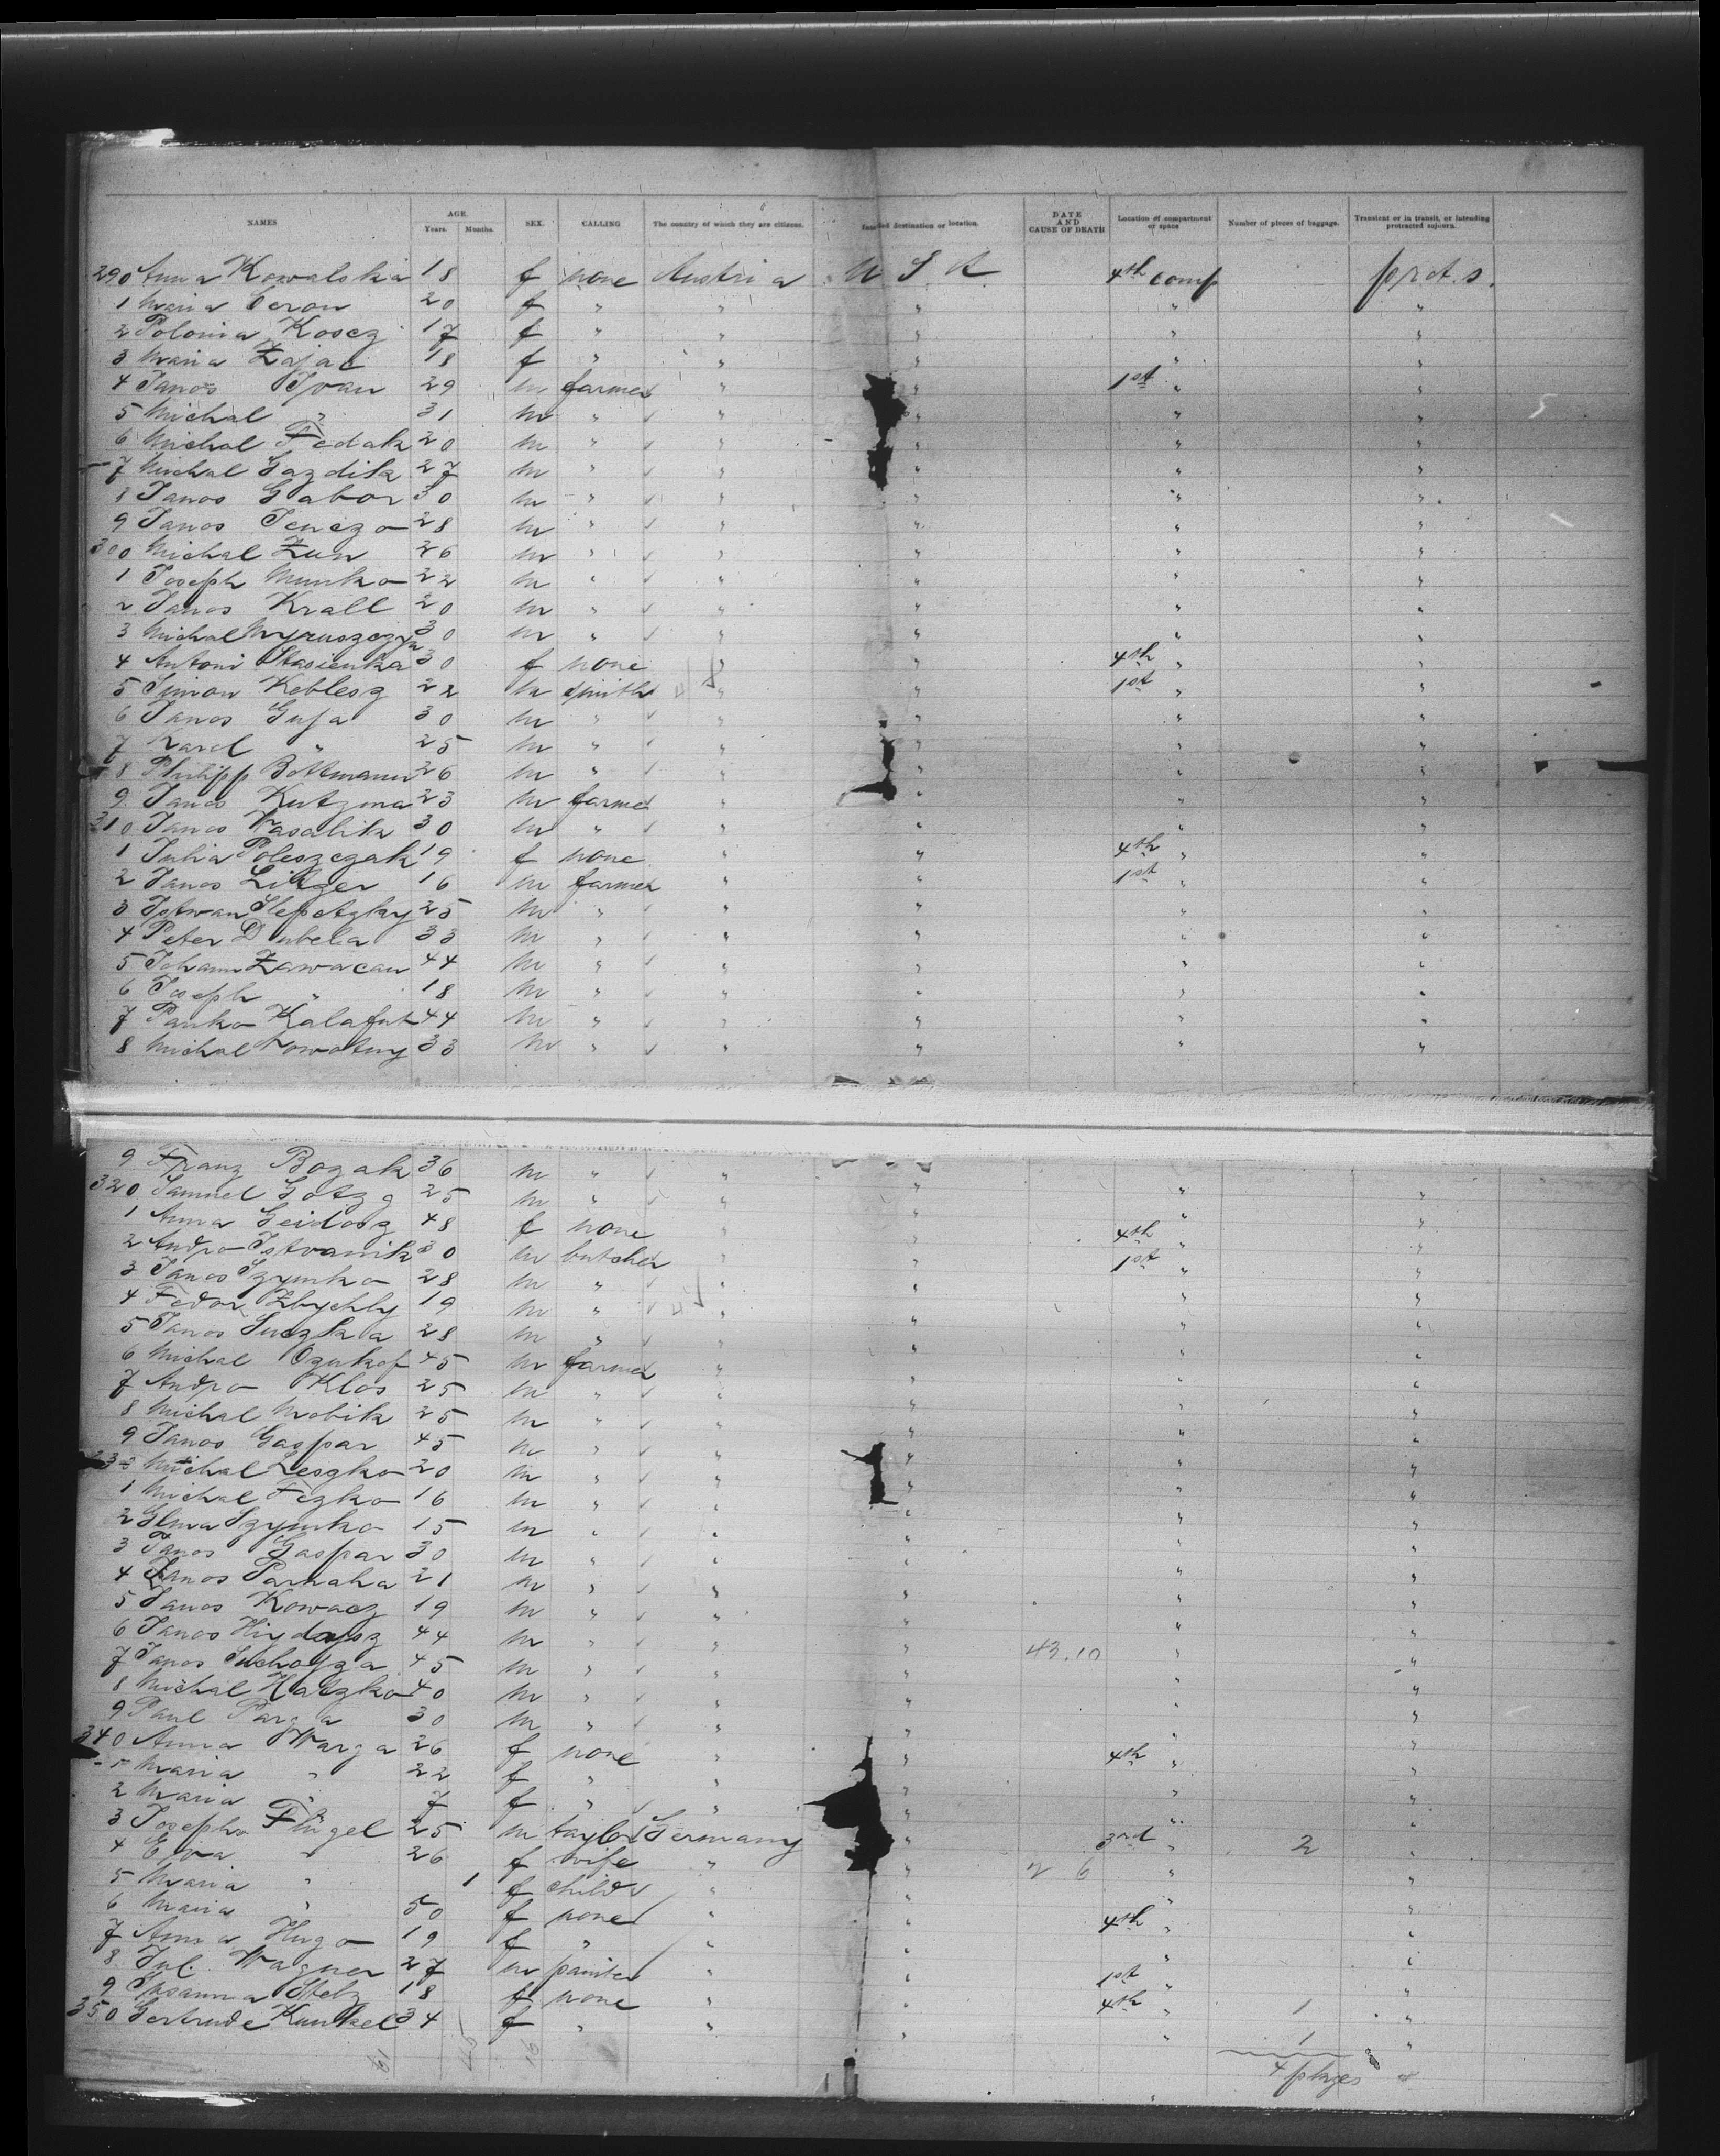 NAMES AGE. Years. Months. SEX. CALLING The country of which they are citizens. Intended destination or location. DATE AND CAUSE OF DEATH Location of compartment or space Number of pieces of baggage. Transient or in transit, or intending protracted sojourn.
290 Anna Kowalska 18 f none Austria U S A 4th comp prct. s.
1 Maria Ceron 20 f " " " " "
2 Polonia Koscz 17 f " " " " "
3 Maria Zajac 18 f " " " " "
4 Janos Ivan 29 m farmer " " 1st " "
5 Michal " 31 m " " " " "
6 Michal Fedak 20 m " " " " "
7 Michal Gazdik 27 m " " " " "
8 Janos Gabor 30 m " " " " "
9 Janos Jenczo 28 m " " " " "
300 Michal Zun 26 m " " " " "
1 Joseph Munko 22 m " " " " "
2 Janos Krall 20 m " " " " "
3 Michal 30 m " " " " "
4 Antoni Stasienka 30 f none " " 4th " "
5 Simon Keblesz 22 m smith " " 1st " "
6 Janos Guja 30 m " " " " "
7 Karel " 25 m " " " " "
8 Philipp Bottmann 26 m " " " " "
9 Janos Kutzma 23 m farmer " " " "
310 Janos Wasalik 30 m " " " " "
1 Julia Poleszczak 19 f none " " 4th " "
2 Janos Litzer 16 m farmer " " 1st " "
3 Istwan Slepetzky 25 m " " " " "
4 Peter Dubela 33 m " " " " "
5 Johann Zawacan 44 m " " " " "
6 Joseph " 18 m " " " " "
7 Panko Kalafut 44 m " " " " "
8 Michal Nowotny 33 m " " " " "
9 Franz Bozak 36 m " " " " "
320 Samuel Gotzg 25 m " " " " "
1 Anna Geidosz 48 f none " " 4th " "
2 Andro Istvanik 30 m butcher " " 1st " "
3 Janos Szymko 28 m " " " " "
4 Fedor Zbychly 19 m " " " " "
5 Janos Suczka 28 m " " " " "
6 Michal 45 m farmer " " " "
7 Andro Klos 25 m " " " " "
8 Michal Mobik 25 m " " " " "
9 Janos Gaspar 45 m " " " " "
Michal Leszko 20 m " " " " "
1 Michal Fezko 16 m " " " " "
2 Szymko 15 m " " " " "
3 Janos Gaspar 30 m " " " " "
4 Janos Parnaha 21 m " " " " "
5 Janos Kowacz 19 m " " " " "
6 Janos 44 m " " " " "
7 Janos Suchoyza 45 m " " " 43.10 " "
8 Michal Hatzko 40 m " " " " "
9 Paul Parza 30 m " " " " "
340 Anna Warga 26 f none " " 4th " "
Maria " 22 f " " " " "
2 Maria " 7 f " " " " "
3 Joseph Flügel 25 m taylor Germany " 3rd " 2 "
4 Eva " 26 f wife " " 2 6 " "
5 Maria " 1 f child " " " "
6 Maria " 50 f none " " 4th " "
7 Anna Hugo 19 f " " " " "
8 Jul. Wagner 27 m painter " " 1st " "
9 Susanna Stelz 18 f none " " 4th " 1 "
350 Gertrude Kunkel 34 f " " " " 1 "
61 45 16 4 pkges